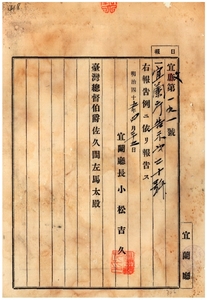 日報
宜廳第一九一號
一宜蘭廳告示第二十號
右報告例ニ依リ報告ス
明治四十五年四月
宜蘭廳長 小松吉久
臺灣總督伯爵佐久間左馬太殿
宜蘭廳